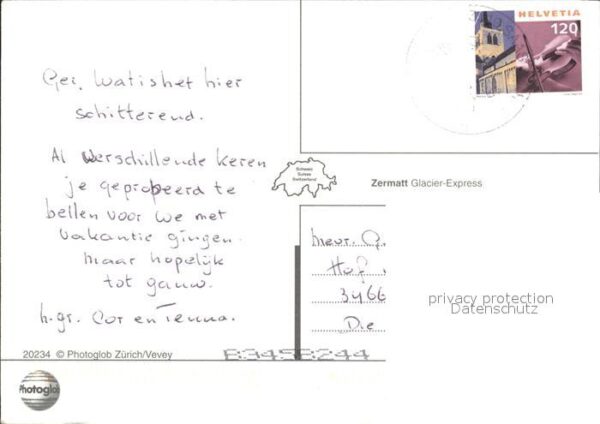 HELVETIA
120
Ger. Wat is het hier
schitterend.
Al verschillende keren
je geprobeerd te
bellen voor we met
vakantie gingen.
maar hopelijk
tot gauw.
h.gr. Cor en Tenna.
Schweiz
Suisse
Switzerland
Zermatt Glacier-Express
Mevr. G.
Hof
3466
Die
privacy protection
Datenschutz
20234 © Photoglob Zürich/Vevey
B3458244
Photoglob